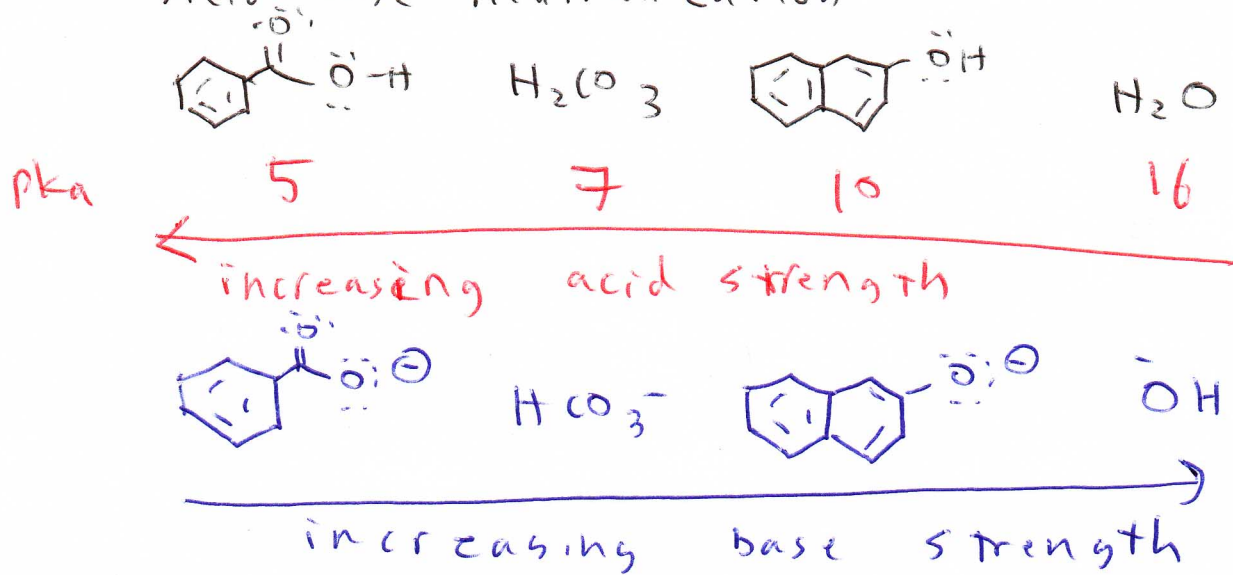 :O: O-H H₂CO₃ OH H₂O
pka 5 7 10 16
increasing acid strength
:O: O:⊖ HCO₃⁻ O:⊖ ⁻OH
increasing base strength